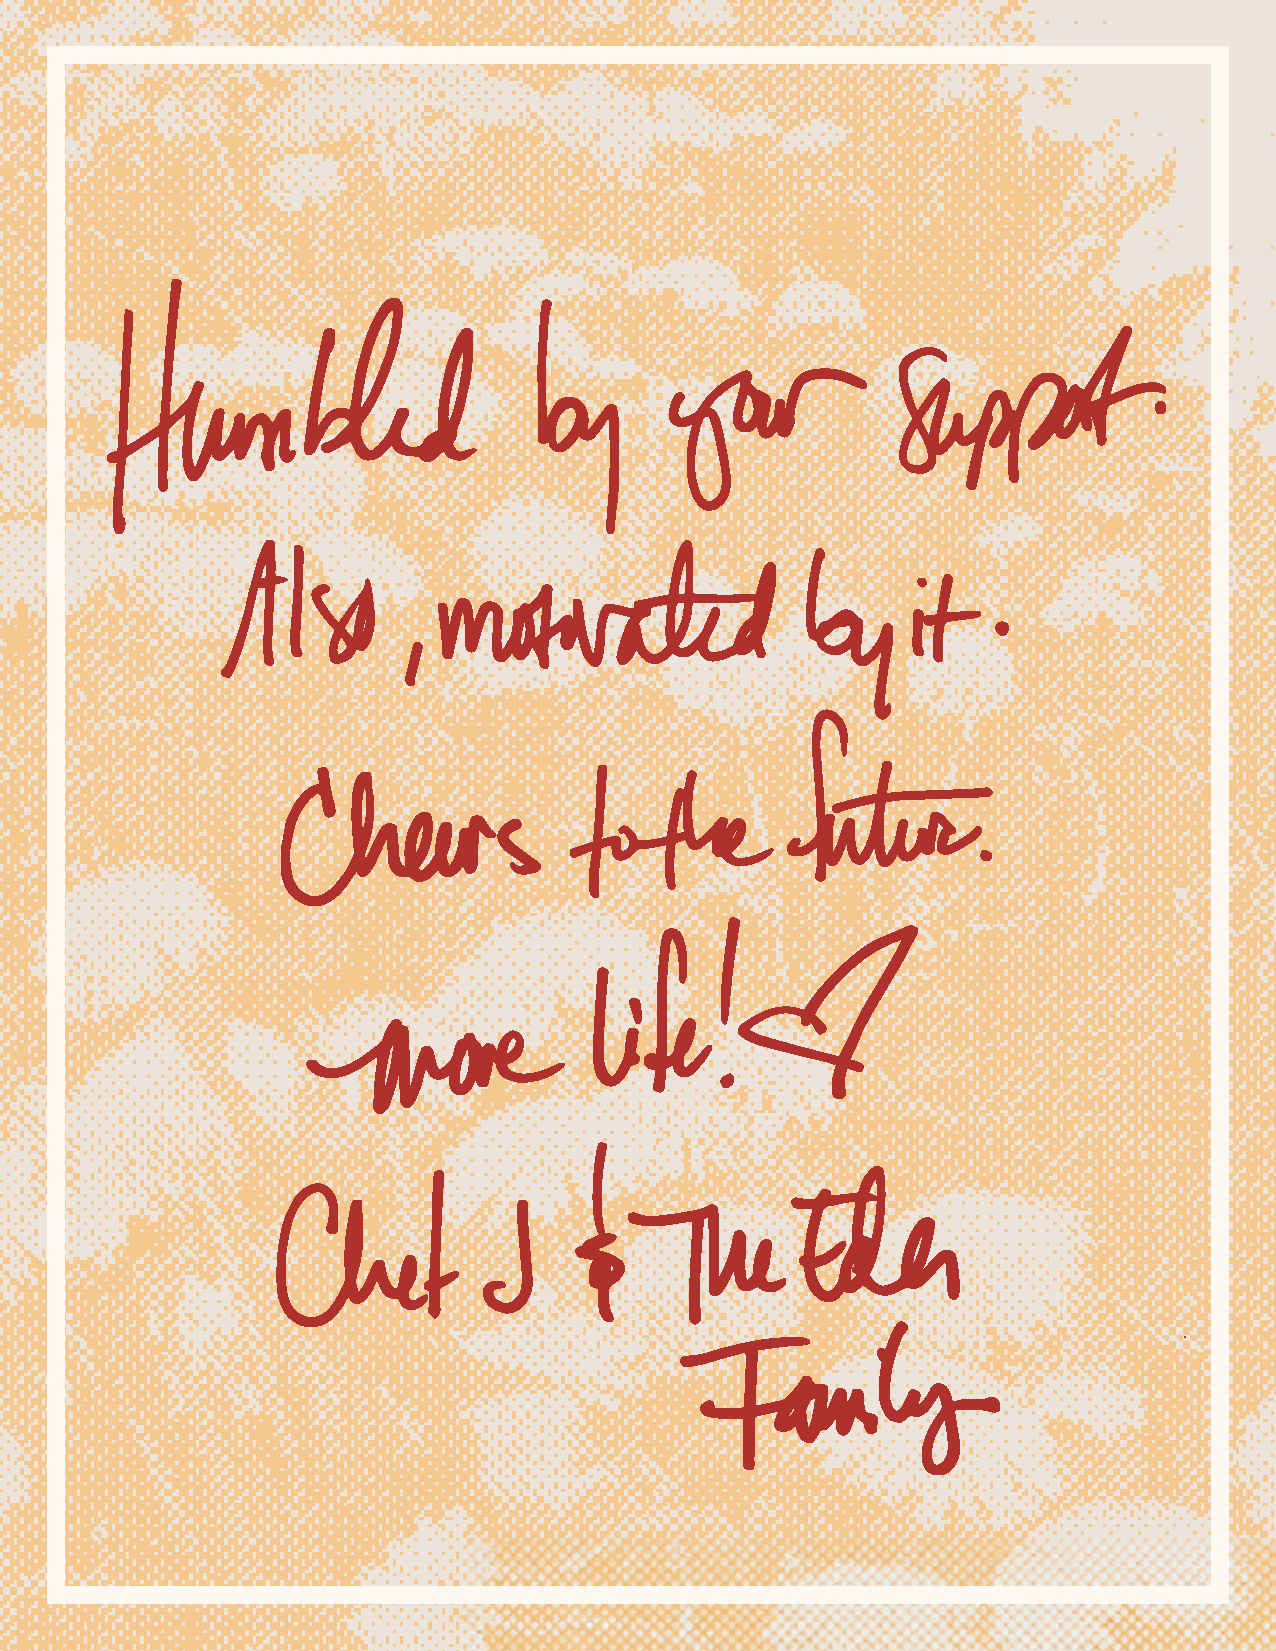 Humbled by your support.
Also, motivated by it.
Cheers to the future.
more life!
Chef J & The Eden
Family